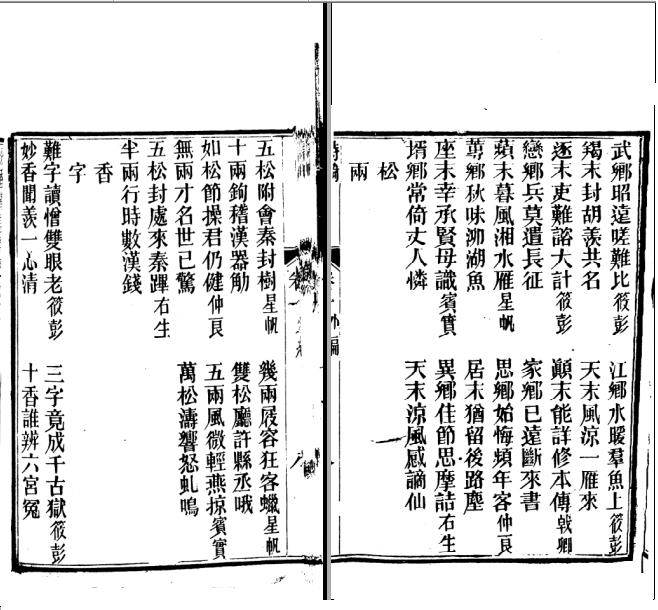 武鄉昭遠嗟難比筱彭　江鄉水暖羣魚上筱彭
羯末封胡羨共名　天末風涼一雁來
逐末吏難諮大計筱彭　顚末能詳修本傳戟卿
戀鄉兵莫遣長征　家鄉已遠斷來書
蘋末暮風湘水雁星帆　思鄉始悔頻年客仲良
蓴鄉秋味泖湖魚　居末猶留後路塵
座末幸承賢母識濱實　異鄉佳節思摩詰右生
壻鄉常倚丈人憐　天末涼風感謫仙
松
兩
五松附會秦封樹星帆　幾兩屐容狂客蠟星帆
十兩鉤稽漢器觔　雙松廳許縣丞哦
如松節操君仍健仲良　五兩風微輕燕掠濱實
無兩才名世已驚　萬松濤響怒虬鳴
五松封處來秦蹕右生
半兩行時數漢錢
香
字
難字讀憎雙眼老筱彭　三字竟成千古獄筱彭
妙香聞羨一心清　十香誰辨六宮冤